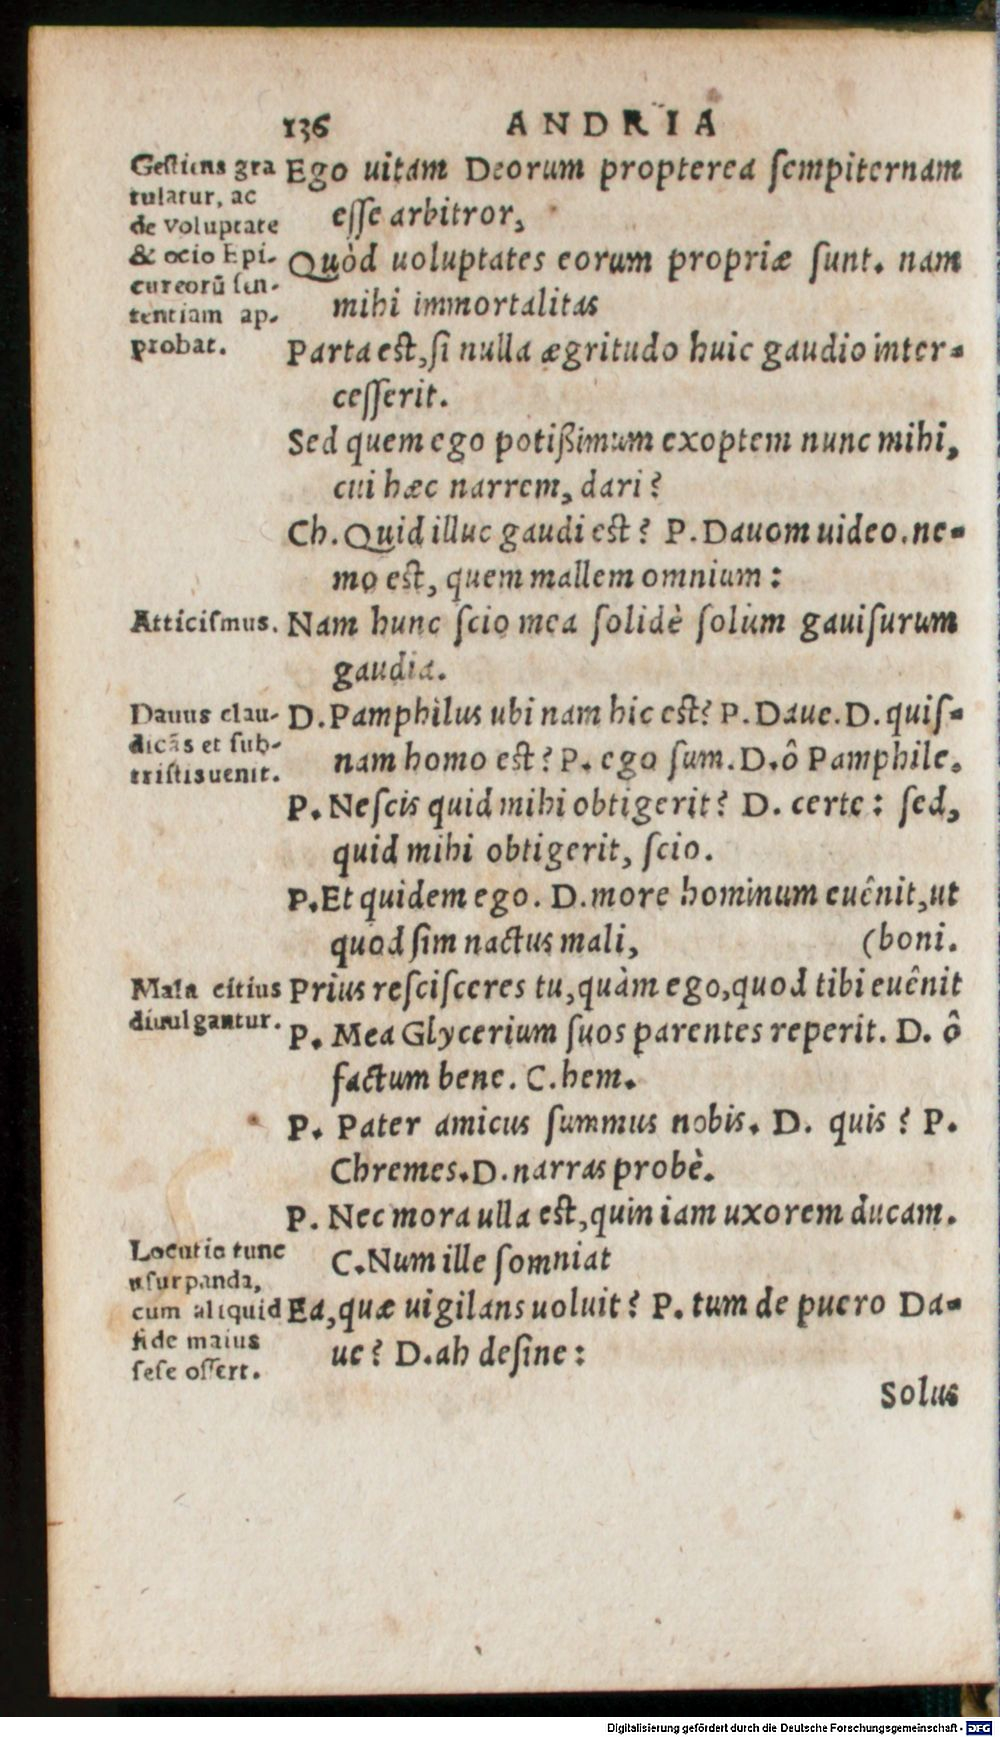 136 ANDRIA
Gestiens gra
tulatur, ac
de voluptate
& ocio Epi-
cureorū sen-
tentiam ap-
probat.
Ego uitam Deorum propterea sempiternam
esse arbitror,
Quòd uoluptates eorum propriæ sunt. nam
mihi immortalitas
Parta est, si nulla ægritudo huic gaudio inter-
cesserit.
Sed quem ego potißimum exoptem nunc mihi,
cui hæc narrem, dari?
Ch. Quid illuc gaudi est? P. Dauom uideo. ne-
mo est, quem mallem omnium:
Atticismus.
Nam hunc scio mea solidè solùm gauisurum
gaudia.
Dauus clau-
dicās et sub-
tristis uenit.
D. Pamphilus ubi nam hic est? P. Daue. D. quis-
nam homo est? P. ego sum. D. ô Pamphile.
P. Nescis quid mihi obtigerit? D. certe: sed,
quid mihi obtigerit, scio.
P. Et quidem ego. D. more hominum euênit, ut
quod sim nactus mali, (boni.
Mala citius
diuulgantur.
Prius rescisceres tu, quàm ego, quod tibi euênit
P. Mea Glycerium suos parentes reperit. D. ô
factum bene. C. hem.
P. Pater amicus summus nobis. D. quis? P.
Chremes. D. narras probè.
P. Nec mora ulla est, quin iam uxorem ducam.
C. Num ille somniat
Locutio tunc
usurpanda,
cum aliquid
fide maius
sese offert.
Ea, quæ uigilans uoluit? P. tum de puero Da-
ue? D. ah desine:
Solus
Digitalisierung gefördert durch die Deutsche Forschungsgemeinschaft - DFG